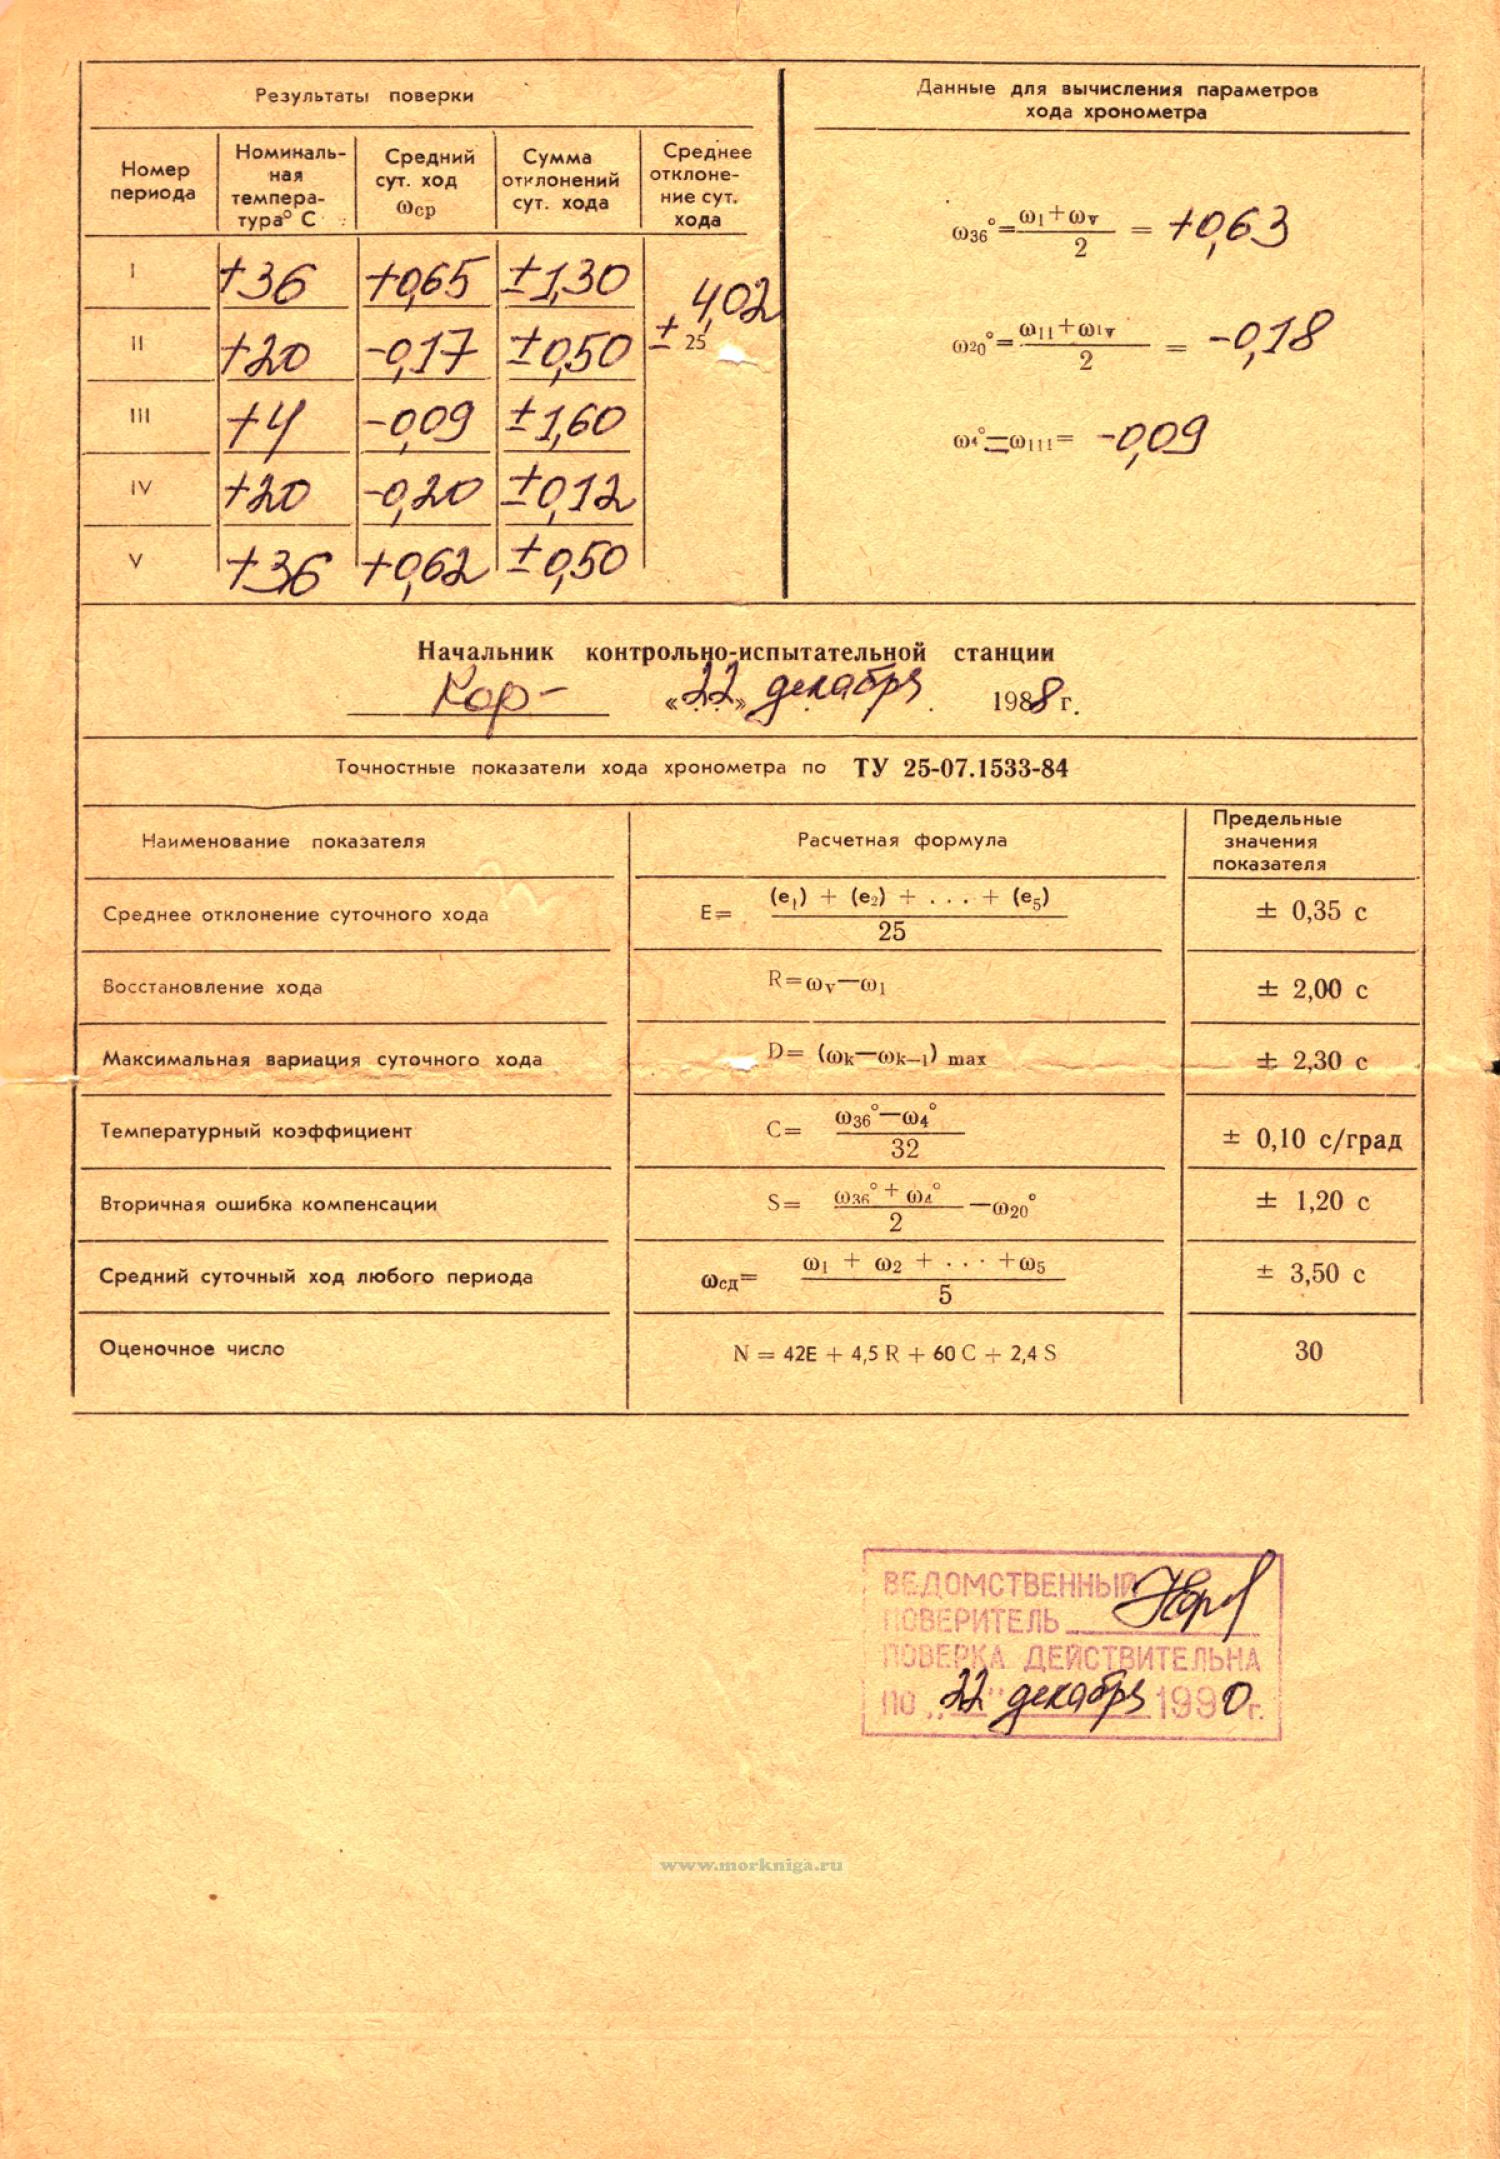 Результаты поверки
Номер периода
Номиналь-ная темпера-тура° С
Средний сут. ход ωср
Сумма отклонений сут. хода
Среднее отклоне-ние сут. хода
I +36 +0,65 ±1,30
II +20 -0,17 ±0,50
± 4,02
25
III +4 -0,09 ±1,60
IV +20 -0,20 ±0,12
V +36 +0,62 ±0,50
Данные для вычисления параметров
хода хронометра
ω36° = (ωI + ωV) / 2 = +0,63
ω20° = (ωII + ωIV) / 2 = -0,18
ω4° = ωIII = -0,09
Начальник контрольно-испытательной станции
Кор- «22» декабря 1988 г.
Точностные показатели хода хронометра по ТУ 25-07.1533-84
Наименование показателя
Расчетная формула
Предельные
значения
показателя
Среднее отклонение суточного хода E= (e1) + (e2) + . . . + (e5) / 25 ± 0,35 с
Восстановление хода R=ωV—ωI ± 2,00 с
Максимальная вариация суточного хода D= (ωk—ωk—1) max ± 2,30 с
Температурный коэффициент C= ω36°—ω4° / 32 ± 0,10 с/град
Вторичная ошибка компенсации S= ω36° + ω4° / 2 —ω20° ± 1,20 с
Средний суточный ход любого периода ωсд= ω1 + ω2 + . . . +ω5 / 5 ± 3,50 с
Оценочное число N = 42E + 4,5 R + 60 C + 2,4 S 30
ВЕДОМСТВЕННЫЙ
ПОВЕРИТЕЛЬ
ПОВЕРКА ДЕЙСТВИТЕЛЬНА
ПО „22" декабря 1990 г.
www.morkniga.ru